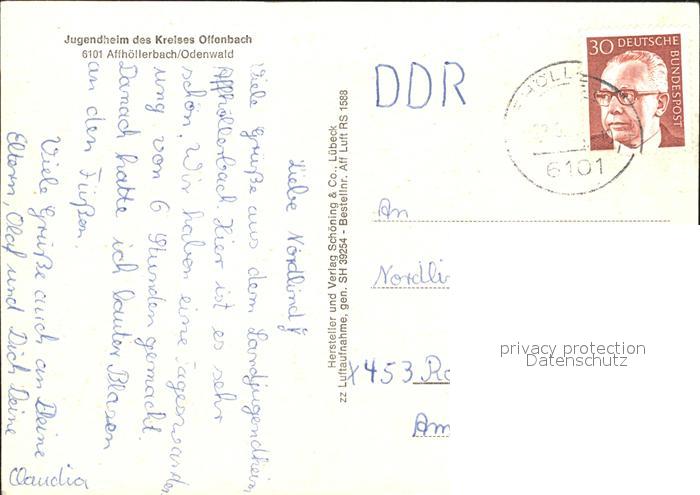 Jugendheim des Kreises Offenbach
6101 Affhöllerbach/Odenwald
Liebe Nordlind
Viele Grüße aus dem Landjugendheim
Affhöllerbach. Hier ist es sehr
schön. Wir haben eine Tageswander
ung von 6 Stunden gemacht.
Danach hatte ich lauter Blasen
an den Füßen.
Viele Grüße auch an Deine
Eltern, Olaf und Dich Deine
Claudia
Hersteller und Verlag Schöning & Co., Lübeck
zz Luftaufnahme, gen. SH 39254 - Bestellnr. Aff Luft RS 1588
DDR
30 DEUTSCHE BUNDESPOST
6101
An
Nordli
X453 Ro
Am
privacy protection
Datenschutz